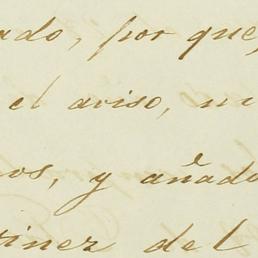 ado, por que,
el aviso, ni
os, y añado
rinez del